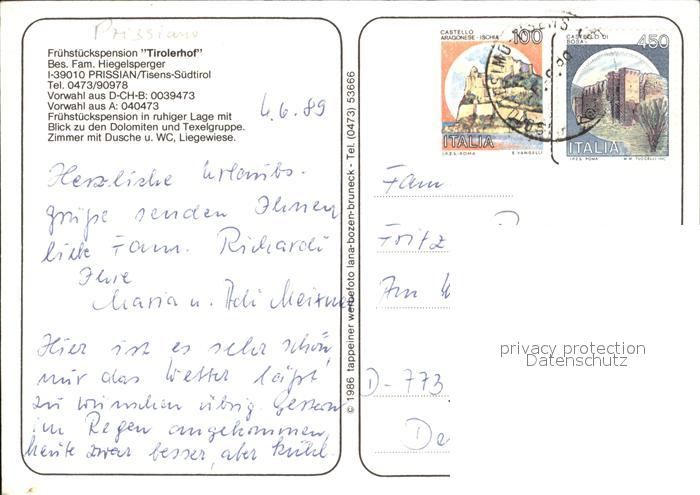 Prissiano
Frühstückspension "Tirolerhof"
Bes. Fam. Hiegelsperger
I-39010 PRISSIAN/Tisens-Südtirol
Tel. 0473/90978
Vorwahl aus D-CH-B: 0039473
Vorwahl aus A: 040473
Frühstückspension in ruhiger Lage mit
Blick zu den Dolomiten und Texelgruppe.
Zimmer mit Dusche u. WC, Liegewiese.
4.6.89
Herzliche Urlaubs-
grüße senden Ihnen
liebe Fam. Richardi
Ihre
Maria u. Adi Meixner
Hier ist es sehr schön,
nur das Wetter läßt
zu wünschen übrig. Gestern
im Regen angekommen,
heute zwar besser, aber kühl.
© 1986 tappeiner werbefoto lana-bozen-bruneck - Tel. (0473) 53666
CASTELLO
ARAGONESE - ISCHIA
100
ITALIA
I.P.Z.S. - ROMA
E. VANGELLI
CASTELLO DI
BOSA
450
ITALIA
I.P.Z.S. ROMA
Fam
Fritz
Am
D-773
De
privacy protection
Datenschutz